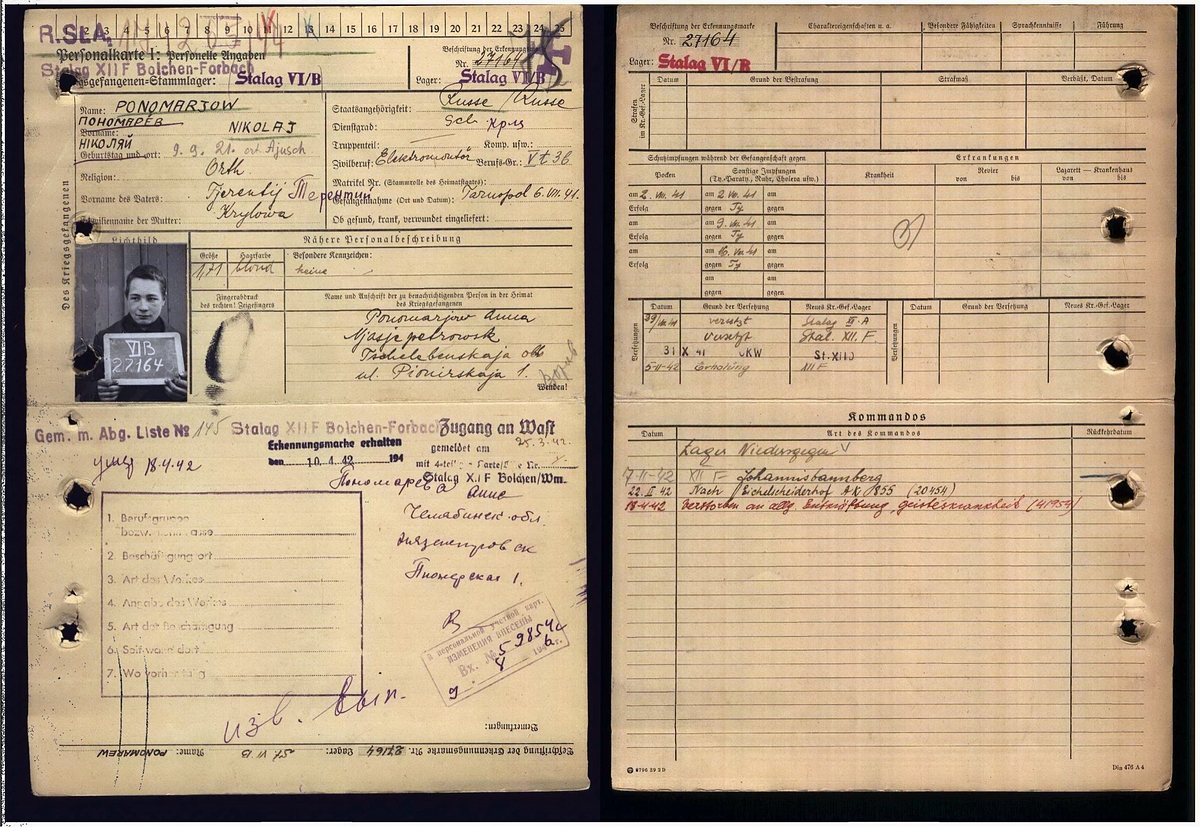 2 3 4 5 6 7 8 9 10 11 12 13 14 15 16 17 18 19 20 21 22 23 24 25
R.SŁA.
Personalkarte I: Personelle Angaben
Stalag XII F Bolchen-Forbach
Kriegsgefangenen-Stammlager: Stalag VI/B
Beschriftung der Erkennungsmarke
Nr. 27164
Lager: Stalag VI/B
Des Kriegsgefangenen
Name: PONOMARJOW
ПОНОМАРЁВ
Vorname: NIKOLAJ
НІКОЛЯЙ
Geburtstag und -ort: 9. 9. 21. ort Ajusch
Religion: Orth.
Vorname des Vaters: Tjerentij Терентий
Familienname der Mutter: Krylowa
Staatsangehörigkeit: Russe / Russe
Dienstgrad:
Truppenteil: Komp. usw.:
Zivilberuf: Elektromontör Berufs-Gr.: V t 36
Matrikel Nr. (Stammrolle des Heimatstaates):
Gefangennahme (Ort und Datum): Tarnopol 6. VII. 41.
Ob gesund, krank, verwundet eingeliefert:
Lichtbild
Nähere Personalbeschreibung
Größe Haarfarbe Besondere Kennzeichen:
171 blond keine
VI B
27164
Fingerabdruck
des rechten! Zeigefingers
Name und Anschrift der zu benachrichtigenden Person in der Heimat
des Kriegsgefangenen
Ponomarjow Anna
Njasjepetrowsk
Tschelebenskaja obl
ul. Pionirskaja 1.
Wenden!
Gem. m. Abg. Liste № 145 Stalag XII F Bolchen-Forbach
Erkennungsmarke erhalten
den 10. 4. 42 194
Zugang an Wast
25. 3. 42.
gemeldet am
Stalag XII F Bolchen/Wm.
умер 18.4.42
Пономарева
Анне
Челябинск обл
Нязепетровск
Пионерская 1.
1. Berufsgruppe
bezw.
2. Beschäftigungsort
3. Art des Werkes
4. Angabe des Werkes
5. Art der Beschäftigung
6. Seit wann dort
7. Wo vorher tätig
В персональную учетн. карт.
ИЗМЕНЕНИЯ ВНЕСЕНЫ
Вх. № 59854
изв. вып.
Bemerkungen:
Beschriftung der Erkennungsmarke Nr. 27164 Lager: St. VI B Name: PONOMAREW
Beschriftung der Erkennungsmarke
Nr. 27164
Lager: Stalag VI/B
Charaktereigenschaften u. a. Besondere Fähigkeiten Sprachkenntnisse Führung
Strafen im Kr.-Gef.-Lager
Datum Grund der Bestrafung Strafmaß Verbüßt, Datum
Schutzimpfungen während der Gefangenschaft gegen
Erkrankungen
Pocken
Sonstige Impfungen
(Ty.-Paraty., Ruhr, Cholera usw.)
Krankheit
Revier
von bis
Lazarett — Krankenhaus
von bis
am 2. VIII. 41 am 2. VIII. 41 am
Erfolg gegen Ty gegen
am am 9. VIII. 41 am
Erfolg gegen Ty. gegen
am am 16. VIII. 41 am
Erfolg gegen Ty gegen
am am
gegen gegen
am am
gegen gegen
Versetzungen
Datum Grund der Versetzung Neues Kr.-Gef.-Lager Datum Grund der Versetzung Neues Kr.-Gef.-Lager
versetzt
versetzt Stal. XII. F
31 X 41 OKW St. XII D
5-II-42 Erholung XII F
Kommandos
Datum Art des Kommandos Rückkehrdatum
7-II-42 XII F Johannisbannberg
22. II 42 Nach Eichelscheiderhof A.K. 855 (20454)
18-4-42 Verstorben an allg. Entkräftung, geisteskrankheit (41954)
Din 476 A 4